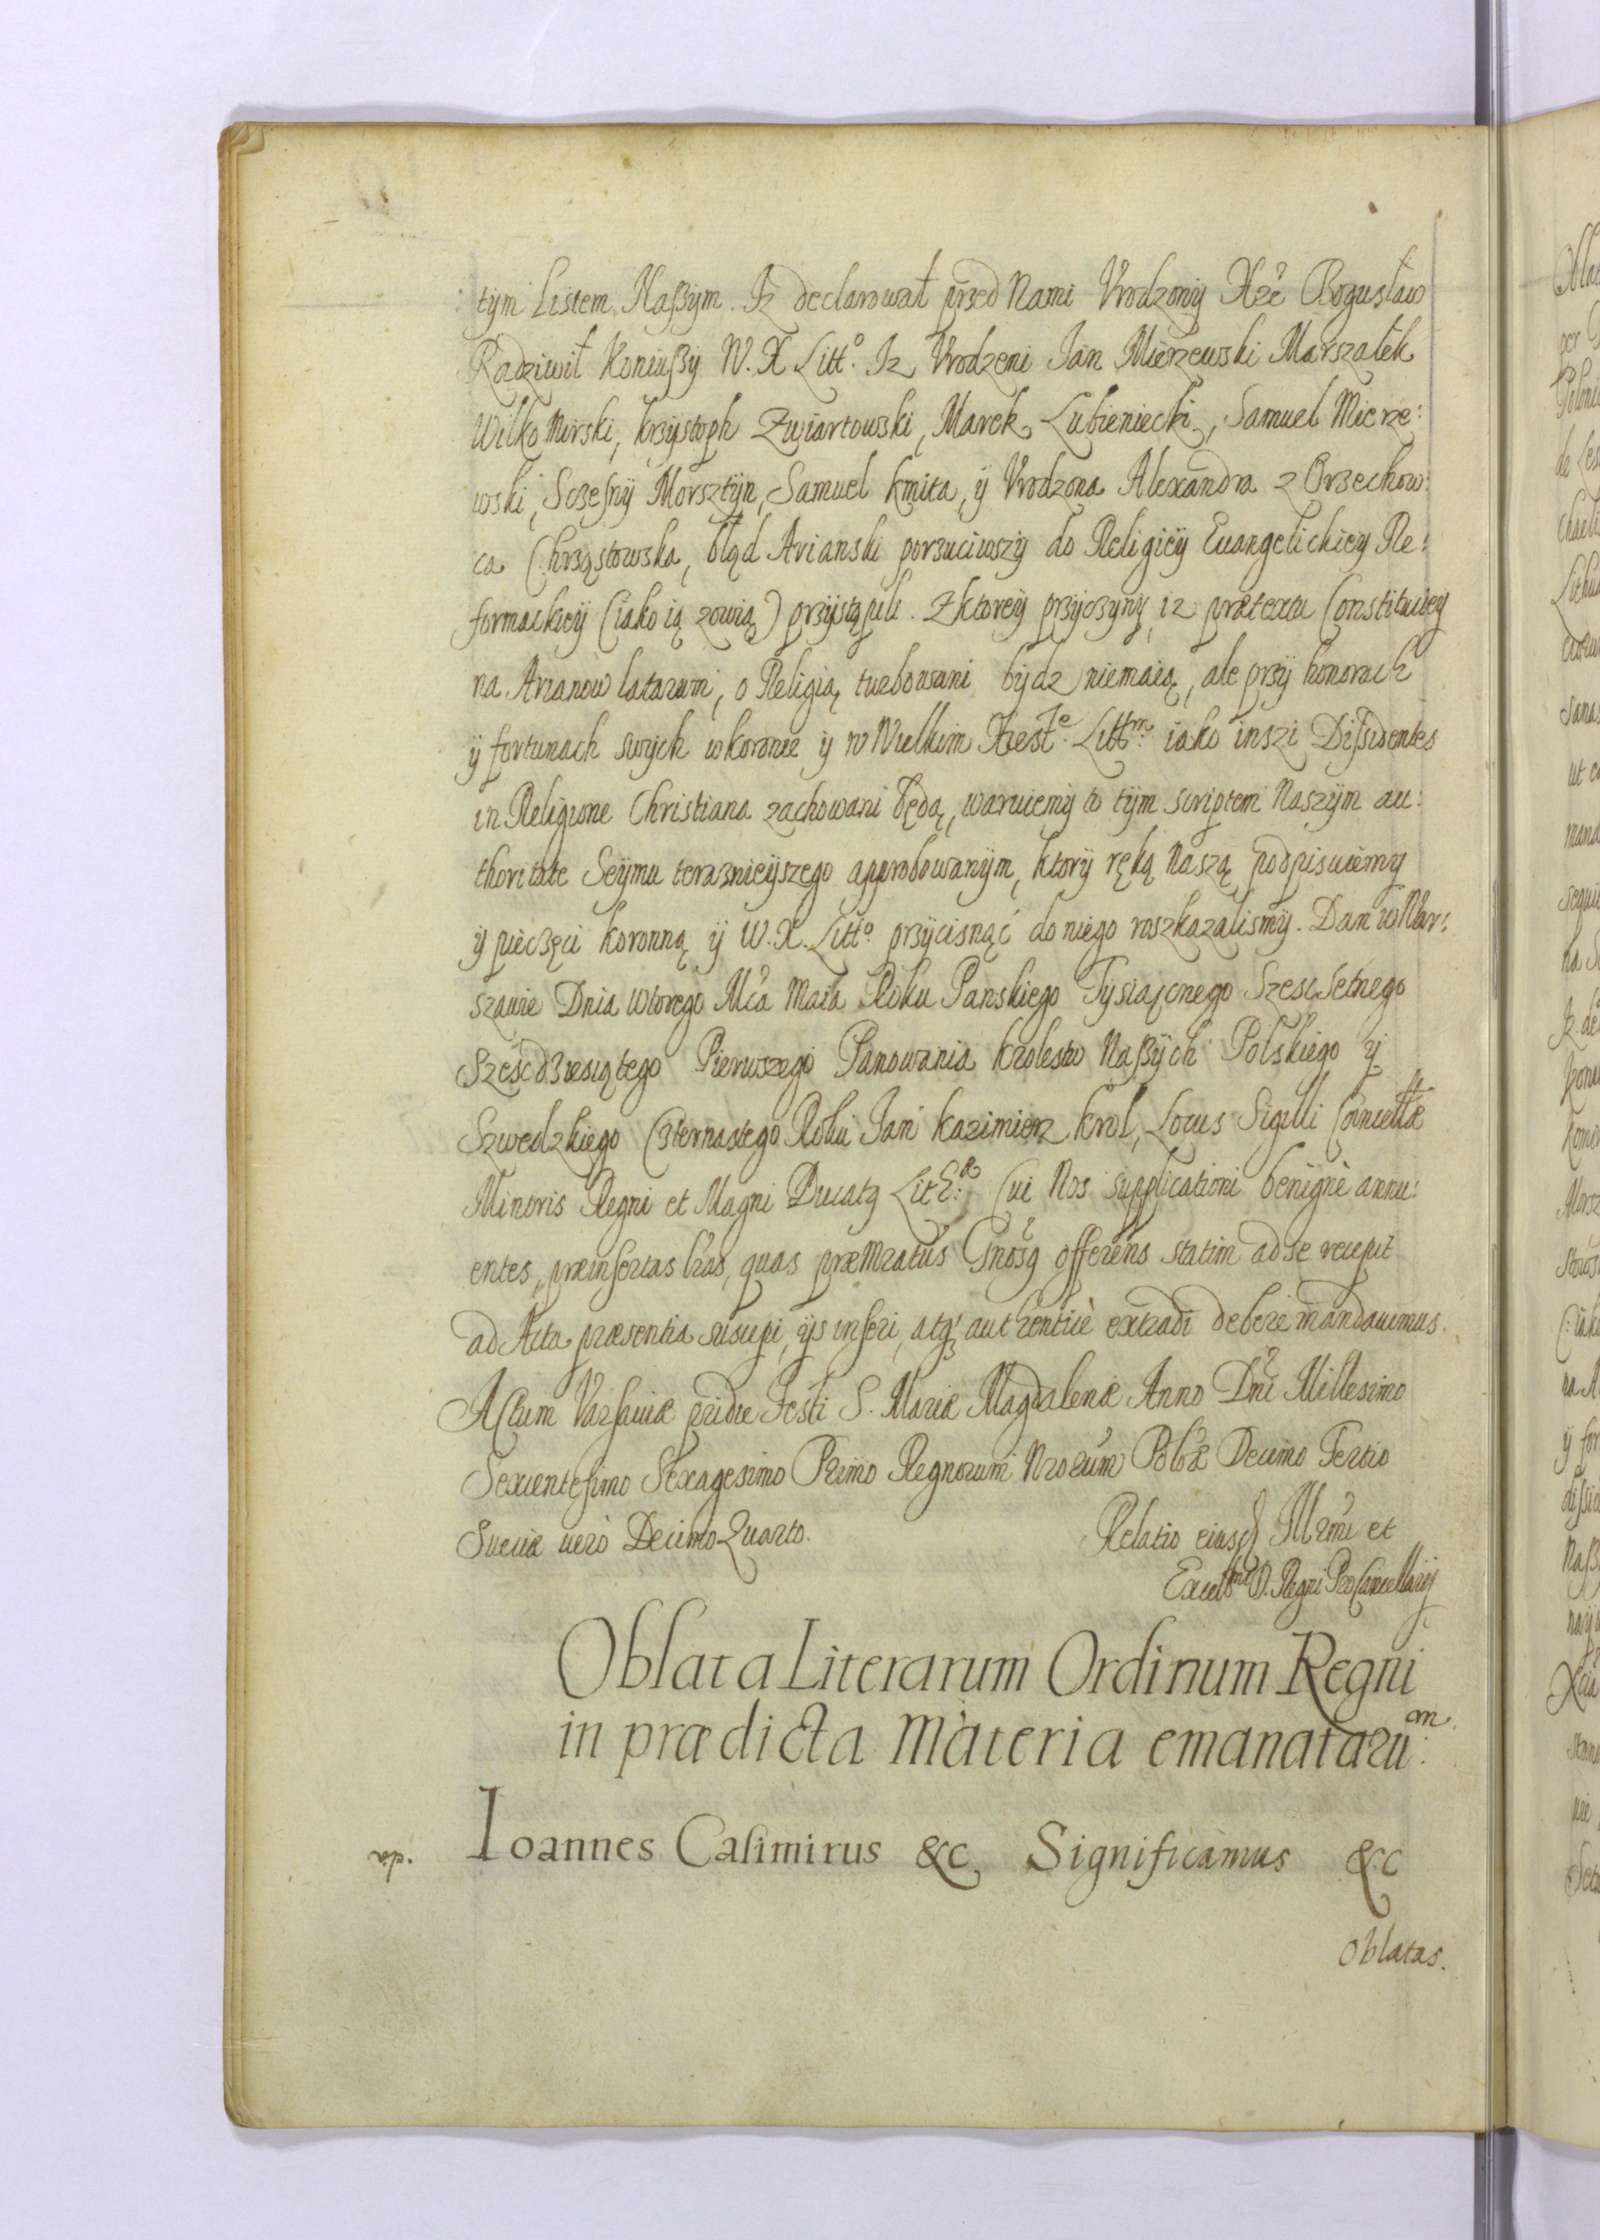 tym Listem Naßym. Iz declarował przed Nami Vrodzony Xże Bogusław
Radziwił Koniußy W. X Litt.º Iz Vrodzeni Ian Mierzewski Marszałek
Wilko Mirski, krzystoph Zwiartowski, Marek Lubieniecki, Samuel Mierze:
wski, Sczęsny Morsztyn, Samuel kmita, ÿ Vrodzona Alexandra z Orzechow:
ca Chrząstowska, błąd Arianski porzuciwszy do Religiey Euangelickiey Re:
formackiey (iako ią zowią) przystąpili. Zktorey przyczyny, iz prætextu Constituciey
na Arianow latarum, o Religią turbowani bydz niemaią, ale przy honorach
ÿ fortunach swych wkoronie ÿ w Wielkim Xiest.e Litt.m iako inszi Dissidentes
in Religione Christiana zachowani będą, waruiemy to tym scriptem Naszym au:
thoritate Seymu teraznieyszego approbowanym, ktory ręką Naszą podpisuiemy
ÿ pieczęci koronną ÿ W. X. Litt.º przycisnąć do niego roszkazalismy. Dan w War:
szawie Dnia wtorego Mca Maia Roku Panskiego Tysiącnego Szescsetnego
Szescdziesiątego Pierwszego Panowania krolestw Naßych Polskiego ÿ
Szwedzkiego Czternastego Roku Ian Kazimierz krol, Locus Sigilli Cancellæ
Minoris Regni et Magni Ducatg Lith: Cui Nos supplicationi benignè annu:
entes, præinsertas lras, quas præmratus Gnosg offerens statim ad se recepit
ad Acta præsentia suscipi, ijs inseri, atq; authenticè extradi debere mandauimus.
Actum Varsauiæ pridie Festi S. Mariæ Magdalenæ Anno Dni Millesimo
Sexcentesimo Sexagesimo Primo Regnorum Nrorum Polõ Decimo Tertio
Sueciæ uerò Decimo Quarto. Relatio eiusd Illrmi et
Excell.mi D. Regni ProCancellarij
Oblata Literarum Ordinum Regni
in prædicta Materia emanataru:m
Ioannes Casimirus &c Significamus &c
Oblatas.